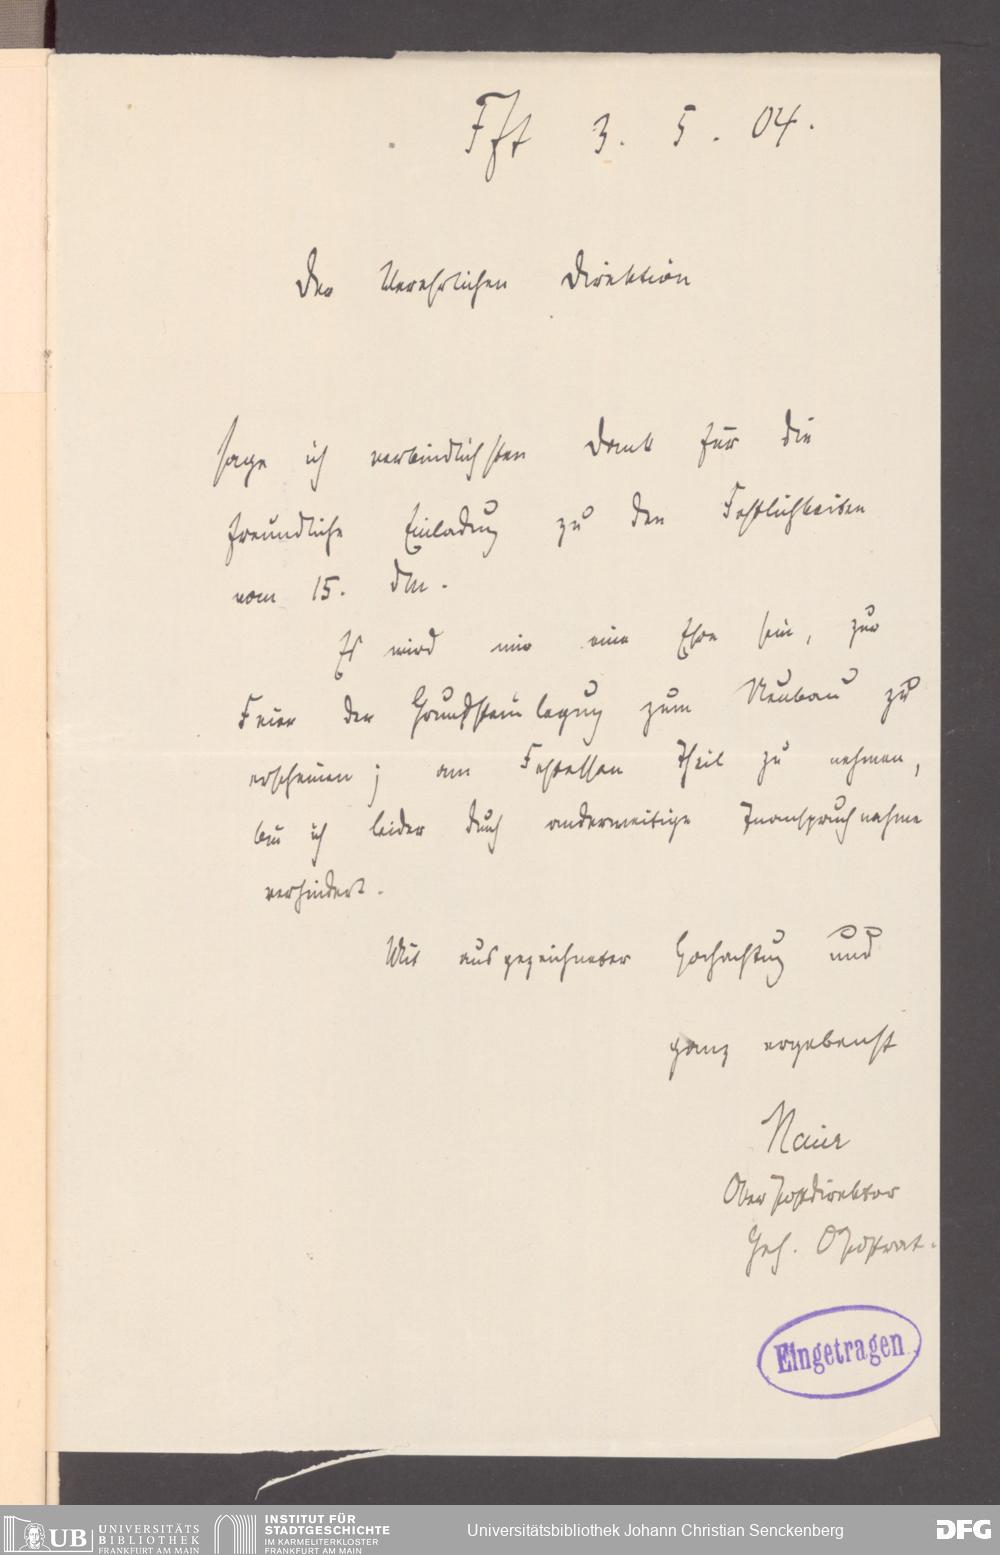 Fft 3. 5. 04.
Der Verehrlichen Direktion
sage ich verbindlichsten Dank für die
freundliche Einladung zu den Festlichkeiten
vom 15. dM.
Es wird mir eine Ehre sein, zur
Feier der Grundsteinlegung zum Neubau zu
erscheinen; am Festessen Theil zu nehmen,
bin ich leider durch anderweitige Inanspruchnahme
verhindert.
Mit ausgezeichneter Hochachtung und
ganz ergebenst
Maier
Oberpostdirektor
Geh. OPostrat.
Eingetragen
UB UNIVERSITÄTS
BIBLIOTHEK
FRANKFURT AM MAIN
INSTITUT FÜR
STADTGESCHICHTE
IM KARMELITERKLOSTER
FRANKFURT AM MAIN
Universitätsbibliothek Johann Christian Senckenberg
DFG